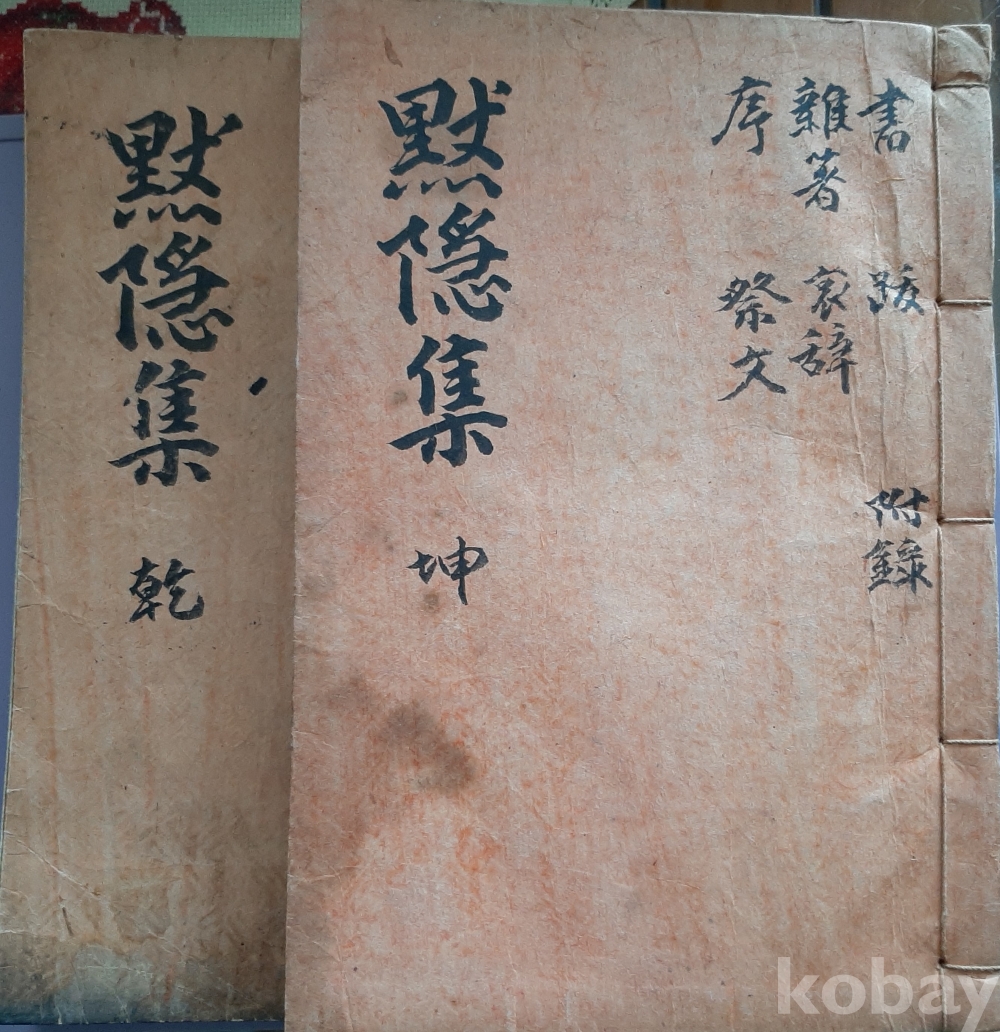 書 跋 附錄
雜著 哀辭
序 祭文
默隱集 坤
默隱集 乾
kobay